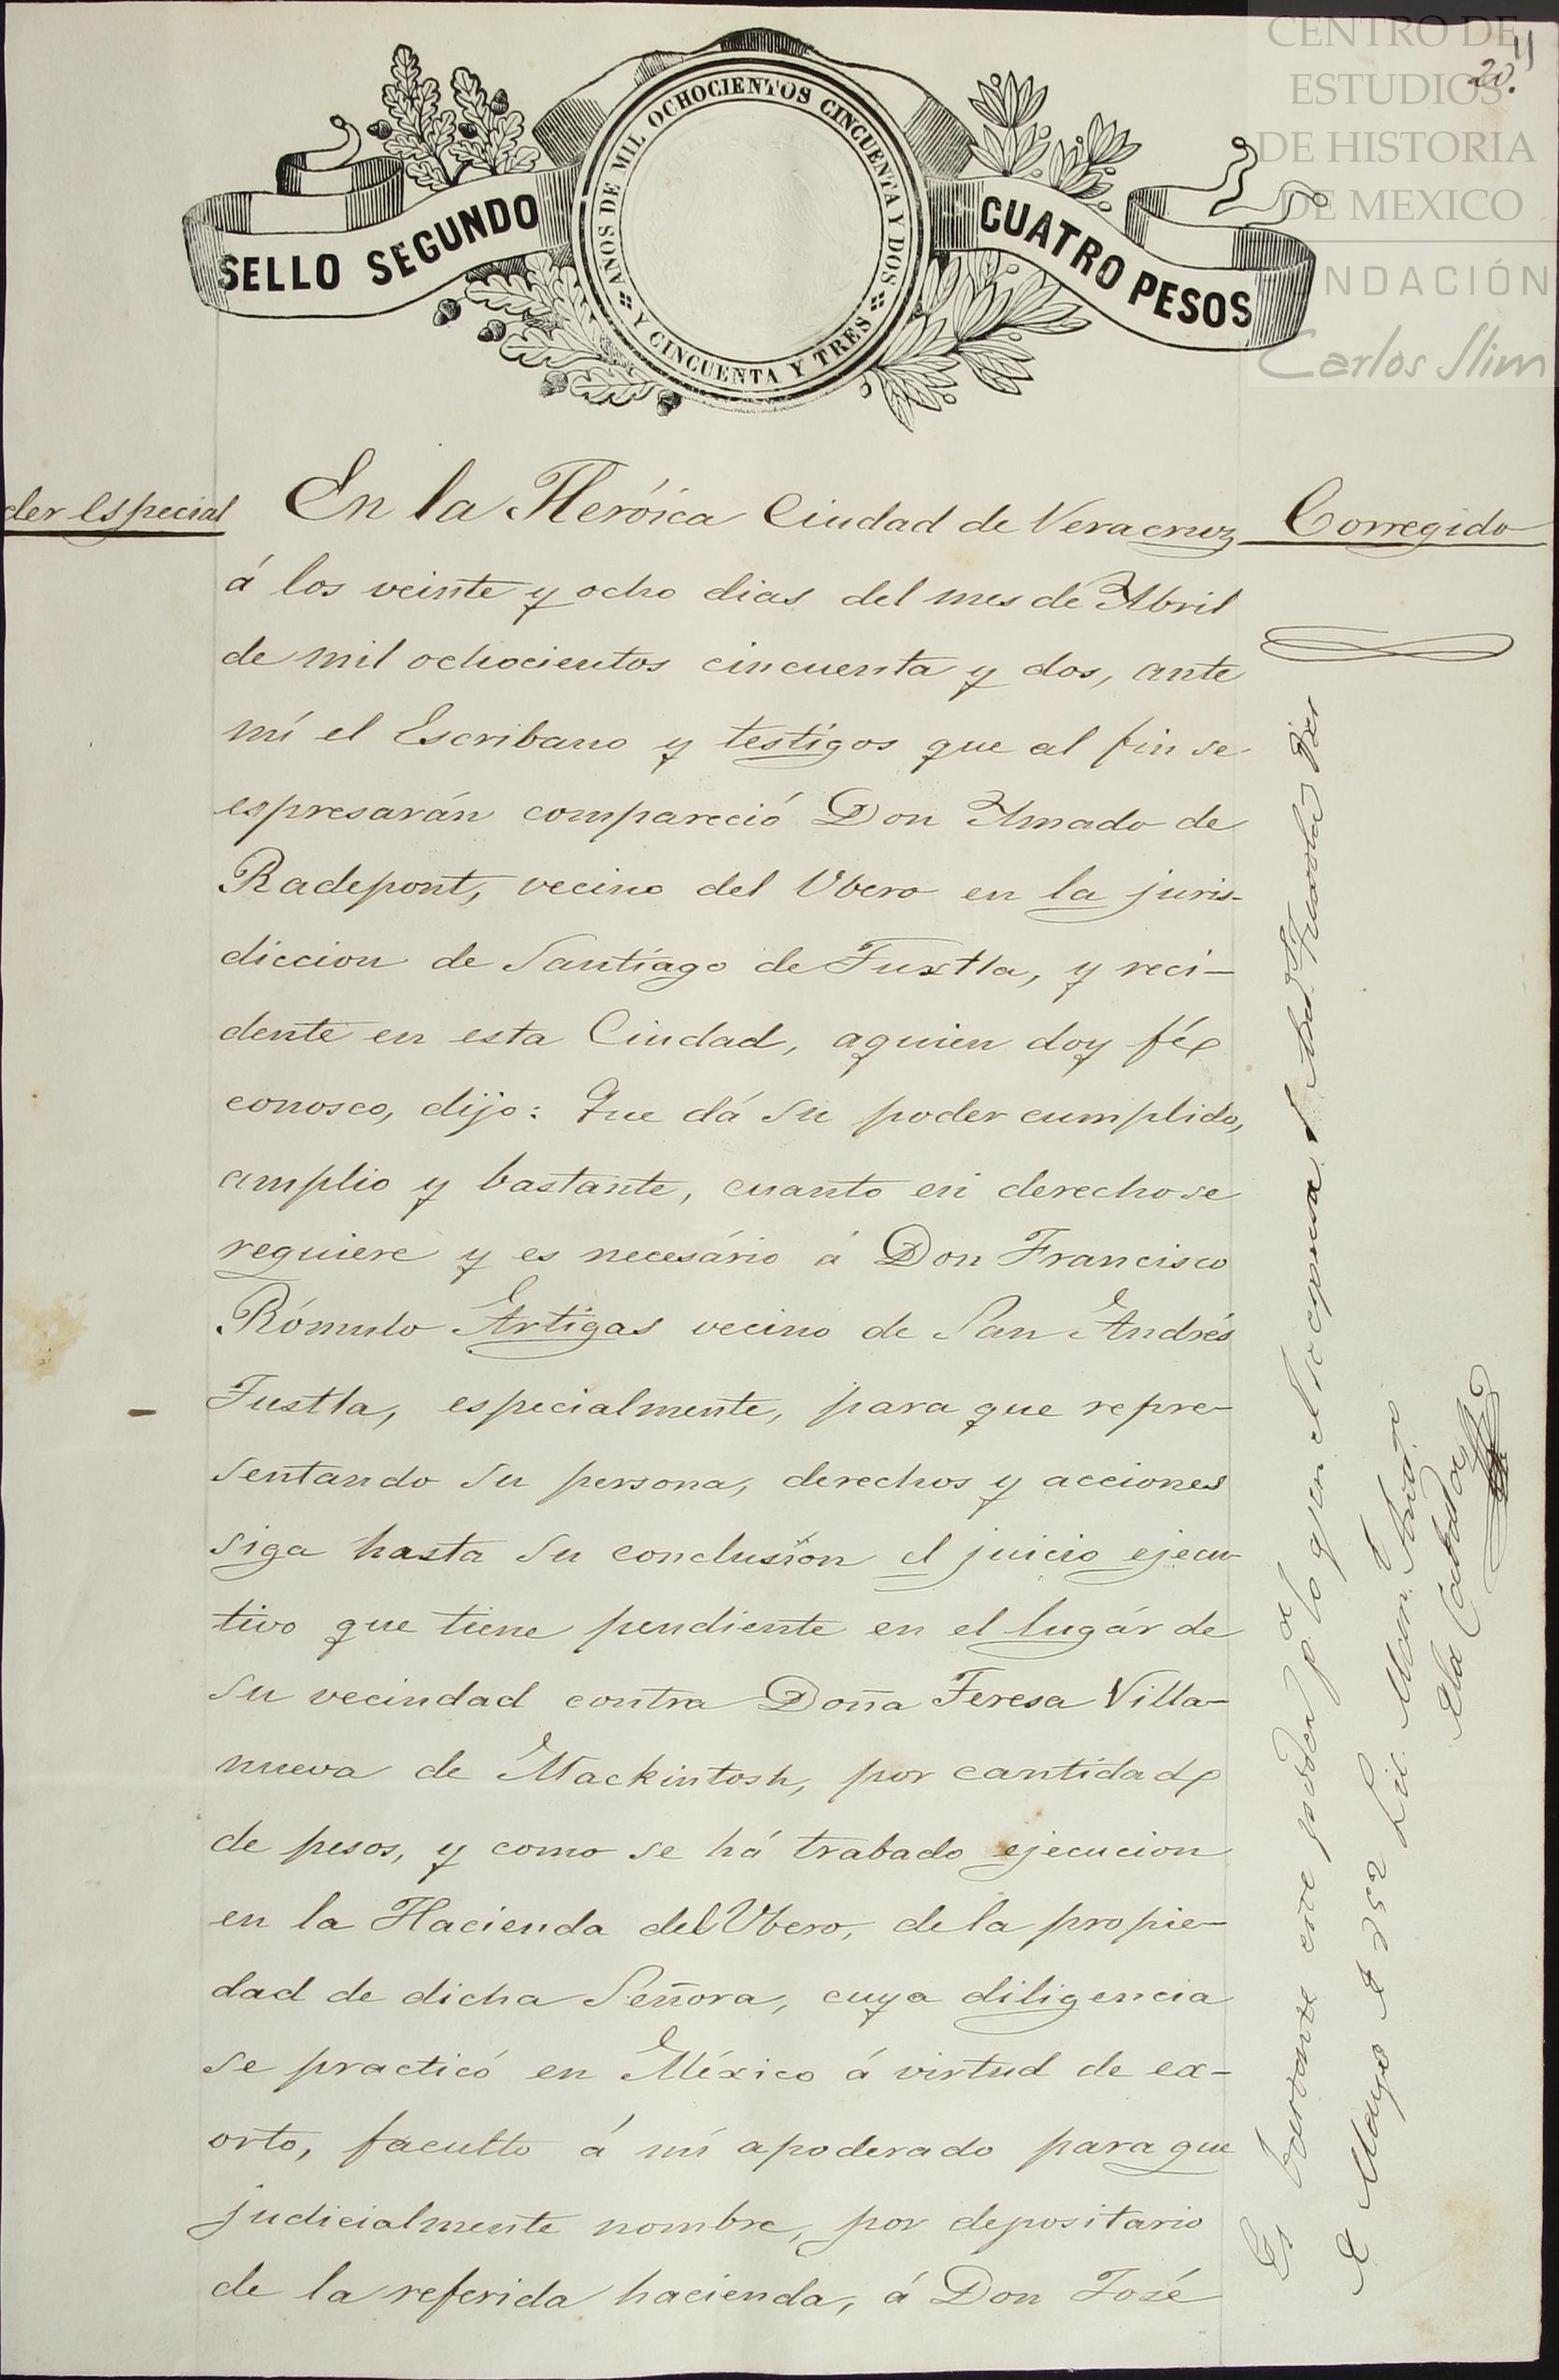 CENTRO DE
ESTUDIOS
DE HISTORIA
DE MEXICO
NDACIÓN
Carlos Slim
20.
11
SELLO SEGUNDO
AÑOS DE MIL OCHOCIENTOS CINCUENTA Y DOS
Y CINCUENTA Y TRES
CUATRO PESOS
der especial
Corregido
En la Heróica Ciudad de Veracruz
á los veinte y ocho dias del mes de Abril
de mil ochocientos cincuenta y dos, ante
mí el Escribano y testigos que al fin se
espresarán compareció Don Amado de
Radepont, vecino del Ubero en la juris-
diccion de Santiago de Tuxtla, y reci-
dente en esta Ciudad, aquien doy fé
conosco, dijo: Que dá su poder cumplido,
amplio y bastante, cuanto en derecho se
requiere y es necesário á Don Francisco
Rómulo Artigas vecino de San Andrés
Tustla, especialmente, para que repre-
sentando su persona, derechos y acciones
siga hasta su conclusion el juicio ejecu-
tivo que tiene pendiente en el lugár de
su vecindad contra Doña Teresa Villa-
nueva de Mackintosh, por cantidad
de pesos, y como se há trabado ejecucion
en la Hacienda del Ubero, de la propie-
dad de dicha Señora, cuya diligencia
se practicó en México á virtud de ex-
orto, faculto á mi apoderado para que
judicialmente nombre, por depositario
de la referida hacienda, á Don José
Es bastante este poder p.ª lo q.e en el se espresa. S. And.s Tuxtla
de Mayo de 1852 Lic. Man.